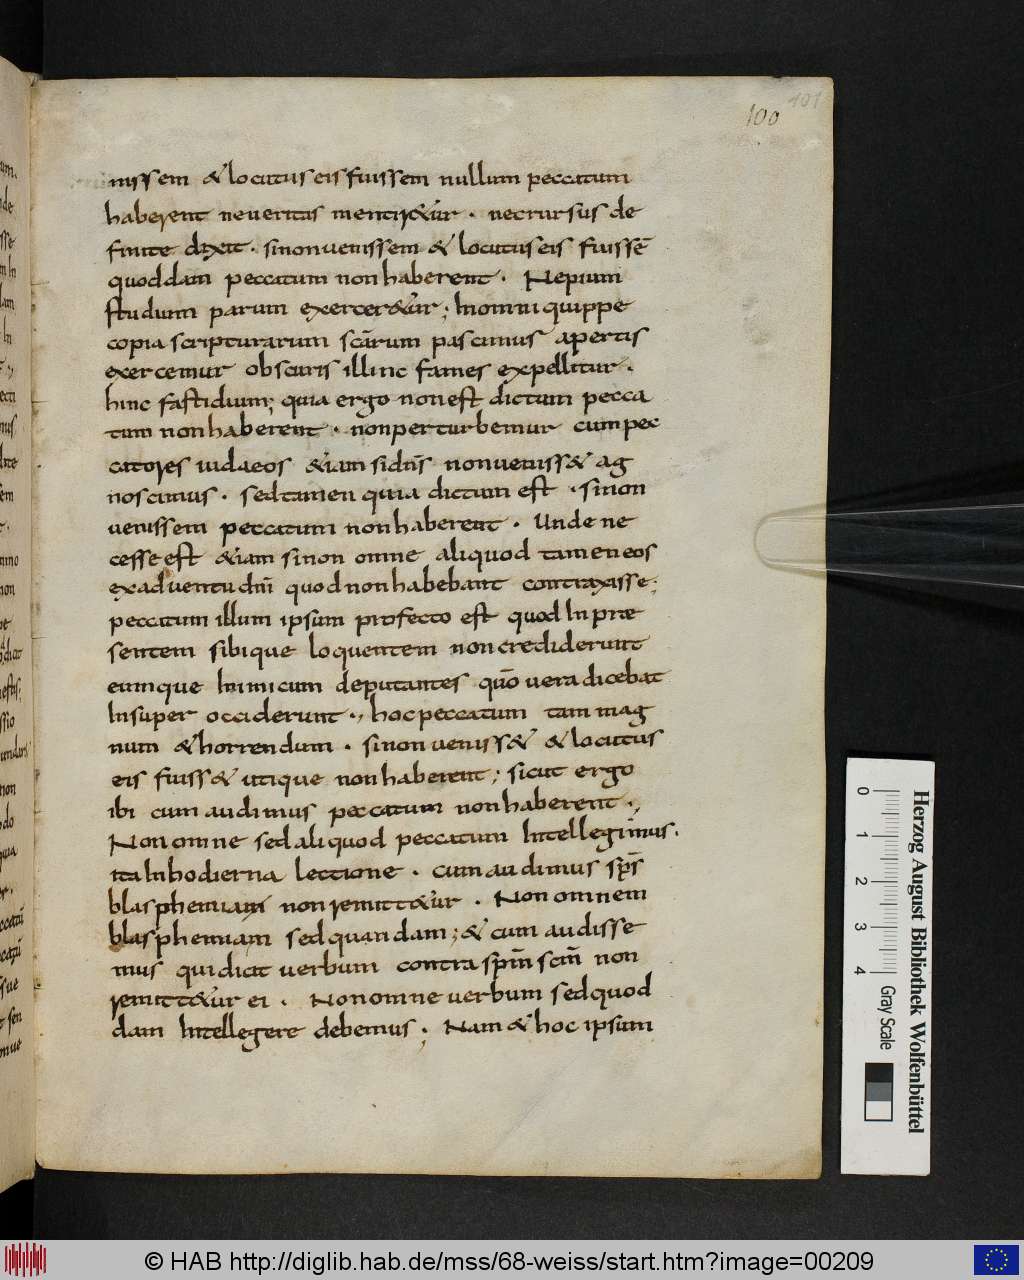 101
100
nissem & locutus eis fuissem nullum peccatum
haberent ne veritas mentir&ur · nec rursus de
finite dixit · si non venissem & locutus eis fuissē
quoddam peccatum non haberent · Ne pium
studium parum exercer&ur; In omni quippe
copia scripturarum scārum pascimus apertis
exercemur obscuris illinc fames expellitur ·
hinc fastidium; quia ergo non est dictum pecca
tum non haberent · non perturbemur cum pec
catores iudaeos &iam si dn̄s non veniss& ag
noscimus · sed tamen quia dictum est · si non
venissem peccatum non haberent · Unde ne
cesse est &iam si non omne aliquod tamen eos
ex adventu dn̄i quod non habebant contraxisse;
peccatum illum ipsum profecto est quod In præ
sentem sibique loquentem non crediderunt
eumque Inimicum deputantes quō vera dicebat
Insuper occiderunt ·, hoc peccatum tam mag
num & horrendum · si non veniss& & locutus
eis fuiss& utique non haberent; sicut ergo
ibi cum audimus peccatum non haberent ·,
Non omne sed aliquod peccatum Intellegimus ·
ita In hodierna lectione · cum audimus sp̄s
blasphemiam non remitt&ur · Non omnem
blasphemiam sed quandam; & cum audisse
mus qui dicit verbum contra sp̄m sc̄m non
remitt&ur ei · Non omne verbum sed quod
dam Intellegere debemus; Nam & hoc ipsum
0
1
2
3
4
Gray Scale
Herzog August Bibliothek Wolfenbüttel
© HAB http://diglib.hab.de/mss/68-weiss/start.htm?image=00209